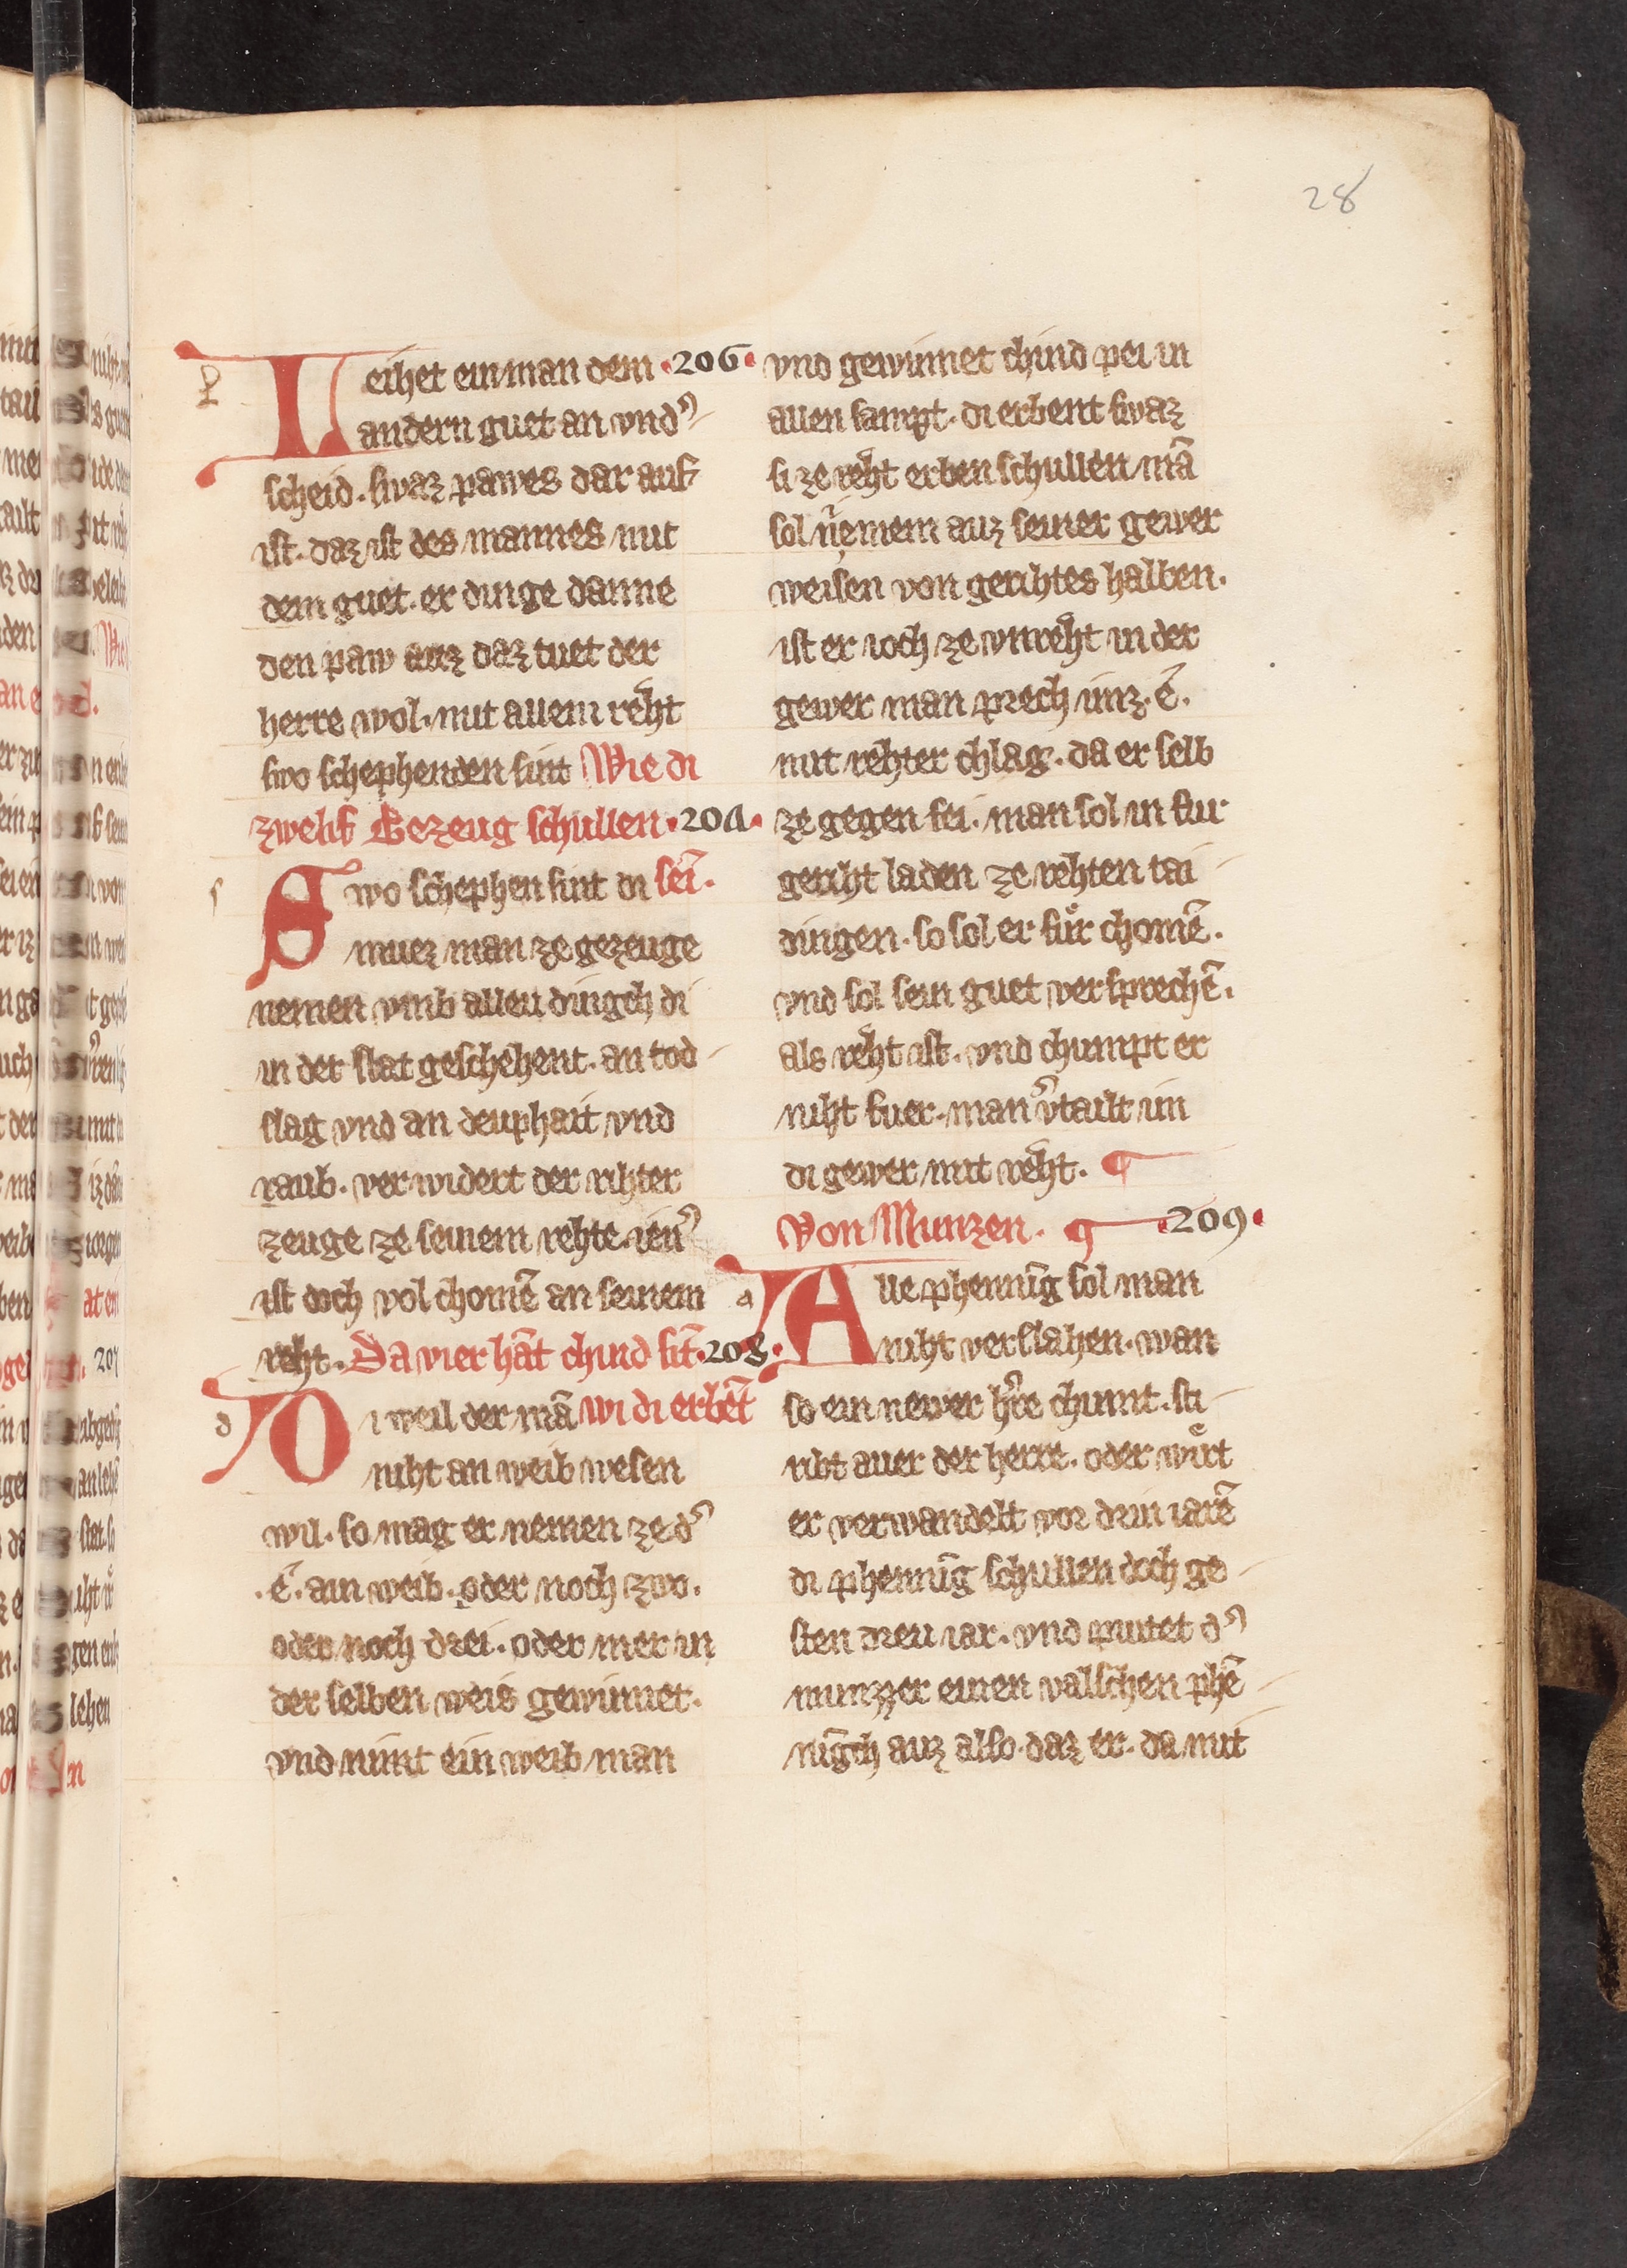 28
Leihet ein man dem ·206·
andern guet an vnd͛
scheid. swaz pawes dar auf
ist. daz ist des mannes mit
dem guet. er dinge danne
den paw auz daz tuet der
herre wol. mit allem reht
swo schephenden sint Wie di
zwelif Gezeug schullen ·207·
Swo schephen sint di sei͂.
muez man ze gezeuge
nemen vmb alleu dingch di
in der stat geschehent. an tod
slag vnd an deuphait vnd
raub. verwidert der rihter
zeuge ze seinem rehte. ien͛
ist doch vol chome͂ an seinem
reht. Da vier ha͂t chind si͂t ·208·
Di weil der ma͂ wi di erbe͂t
niht an weib wesen
wil. so mag er nemen ze d͛
.e͂. ain weib. oder noch zwo.
oder noch drei. oder mer in
der selben weis gewinnet.
vnd nimt ein weib man
vnd gewinnet chind pei in
allen sampt. di erbent swaz
si ze reht erben schullen ma͂
sol niemem auz seiner gewer
weisen von gerihtes halben.
ist er ioch ze vnreht in der
gewer man prech imz. e͂.
mit rehter chlag. da er selb
ze gegen sei. man sol in fur
geriht laden ze rehten tai
dingen. so sol er fuͤr chome͂.
vnd sol sein guet verspreche͂.
als reht ist. vnd chumpt er
niht fuer. man v͛tailt im
di gewer mit reht. ¶
Von Munzen. ·209·
Alle phenni͂g sol man
niht verslahen. wan
so ein newer h͛re chumt. sti
ribt auer der herre. oder wuͤrt
er verwandelt vor drin iare͂
di phenni͂g schullen doch ge
sten dreu iar. vnd putet d͛
munzzer einen valschen phe͂
ni͂gch auz also. daz er. da mit